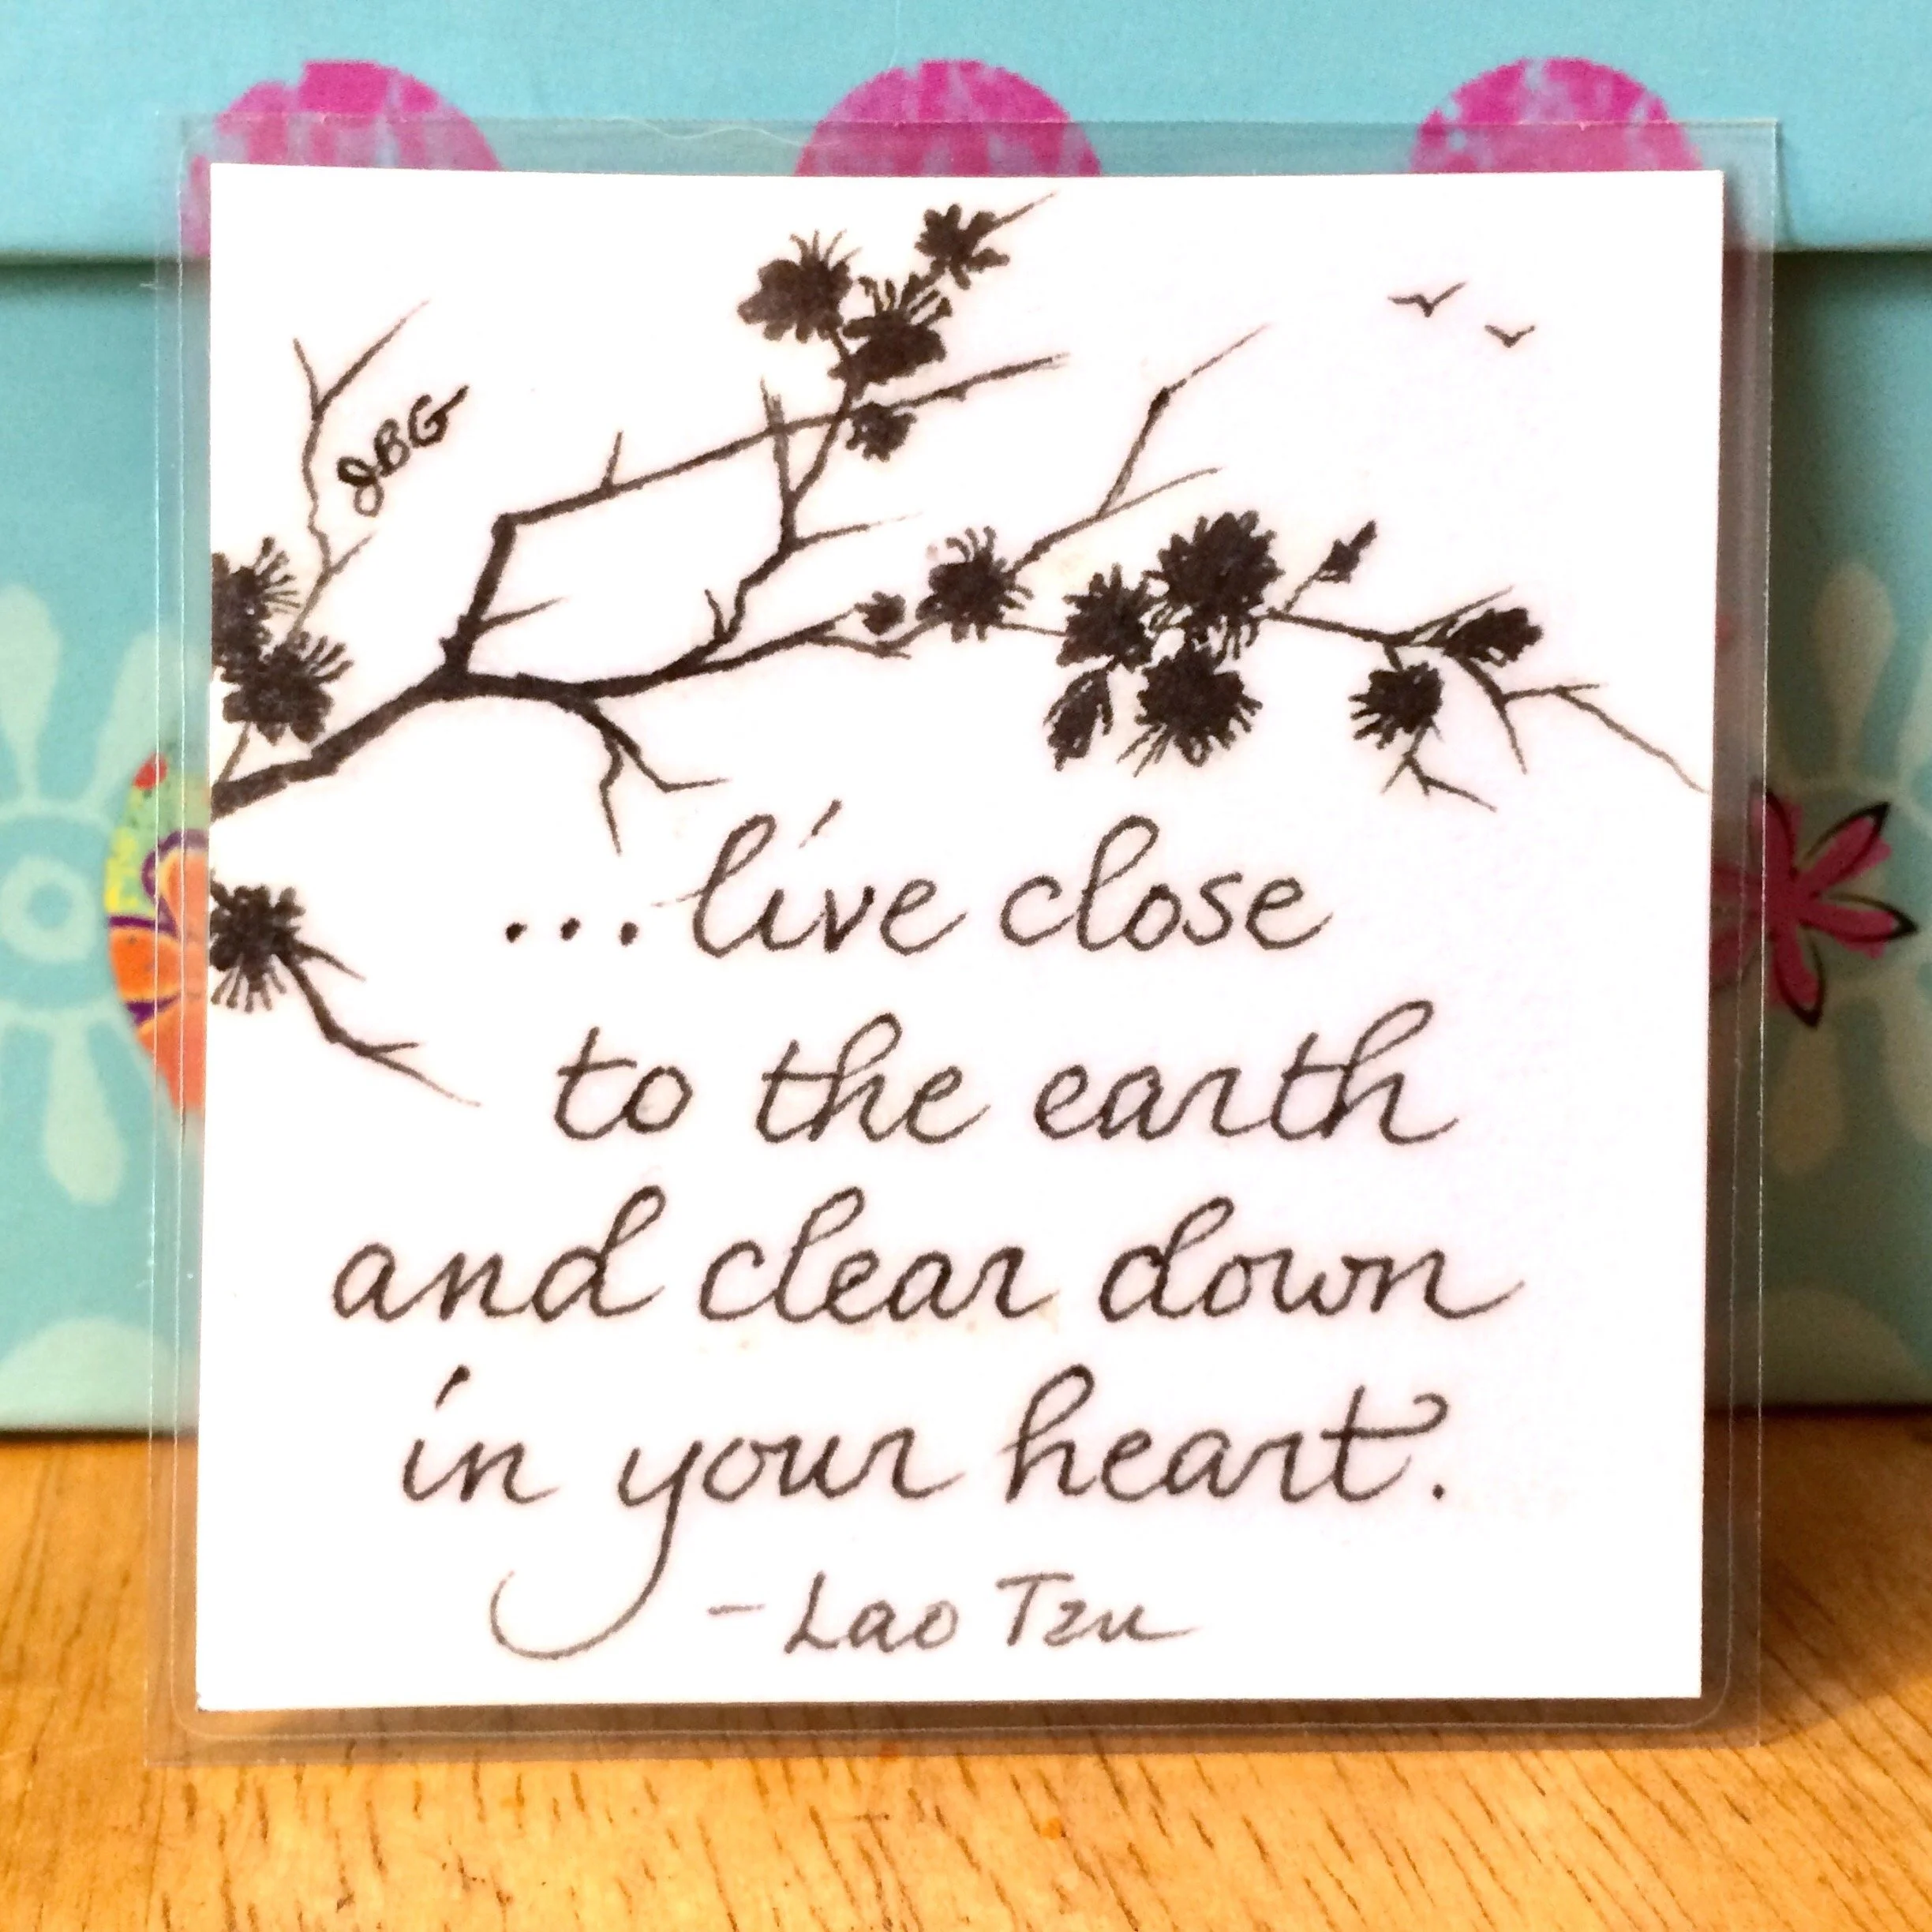 JBG
...live close
to the earth
and clear down
in your heart.
- Lao Tzu